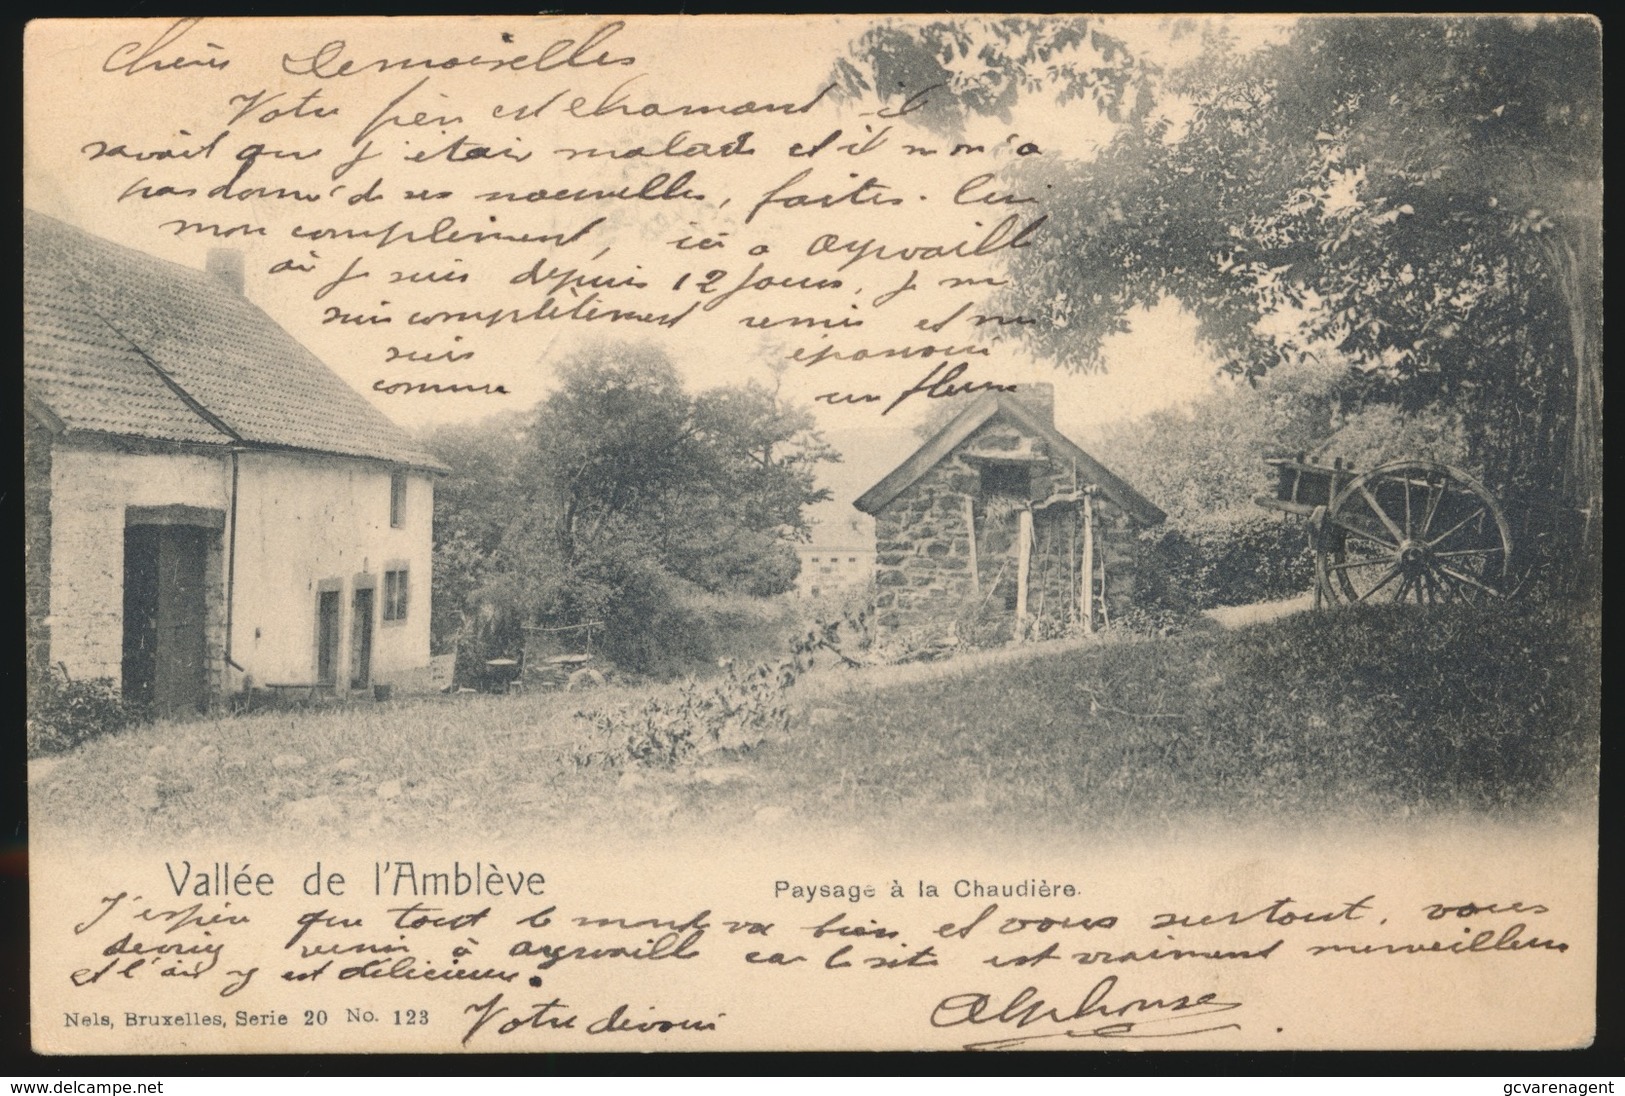 Chères Demoiselles
Votre père est charmant il
savait que j'étais malade et il ne m'a
pas donné de ses nouvelles, faites-lui
mon compliment, ici à Aywaille
où je suis depuis 12 jours, je me
suis complètement remis et me
suis épanoui
comme un fleur
Vallée de l'Amblève
Paysage à la Chaudière.
J'espère que tout le monde va bien et vous surtout, vous
devriez venir à Aywaille car le site est vraiment merveilleux
et l'air y est délicieux.
Nels, Bruxelles, Serie 20 No. 123
Votre dévoué
Alphonse
www.delcampe.net
gcvarenagent